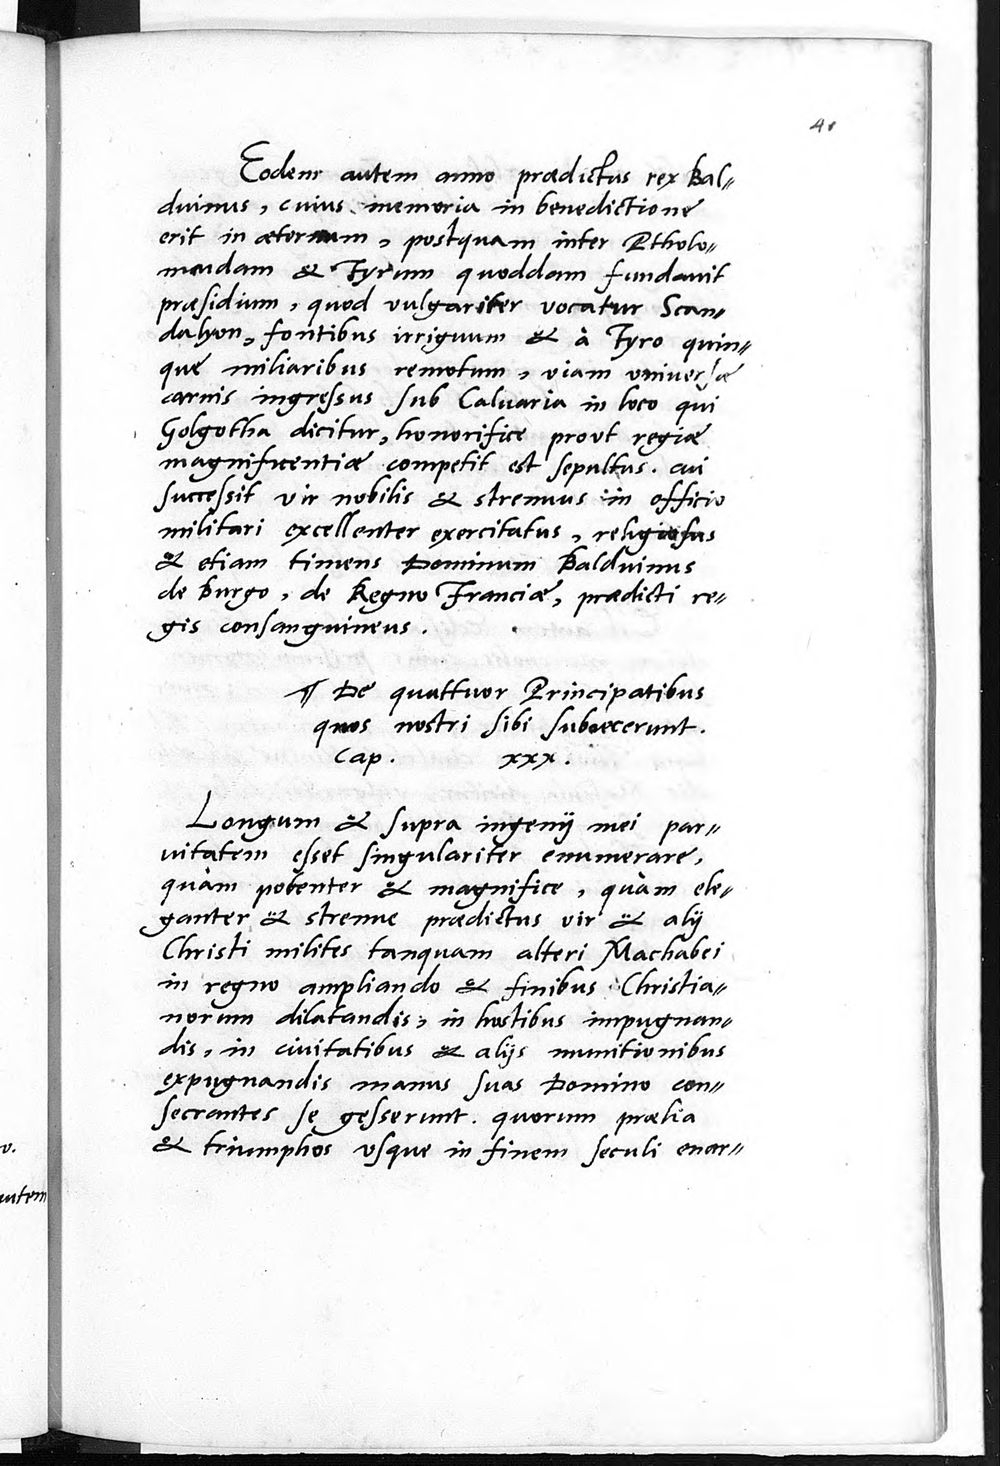 41
Eodem autem anno prædictus rex Bal-
duinus, cuius memoria in benedictione
erit in æternum, postquam inter Ptholo-
maidam & Tyrum quoddam fundauit
præsidium, quod vulgariter vocatur Scan-
dalyon, fontibus irriguum & à Tyro quin-
que miliaribus remotum, viam vniuersæ
carnis ingressus sub Caluaria in loco qui
Golgotha dicitur, honorifice prout regiæ
magnificentiæ competit est sepultus. cui
successit vir nobilis & strenuus in officio
militari excellenter exercitatus, religiosus
& etiam timens Dominum Balduinus
de Burgo, de Regno Franciæ, prædicti re-
gis consanguineus.
¶ De quattuor Principatibus
quos nostri sibi subiecerunt.
Cap. xxx.
Longum & supra ingenij mei par-
uitatem esset singulariter enumerare,
quàm potenter & magnifice, quàm ele-
ganter & strenue prædictus vir & alij
Christi milites tanquam alteri Machabei
in regno ampliando & finibus Christia-
norum dilatandis, in hostibus impugnan-
dis, in ciuitatibus & alijs munitionibus
expugnandis manus suas Domino con-
secrantes se gesserunt. quorum prælia
& triumphos vsque in finem seculi enar-